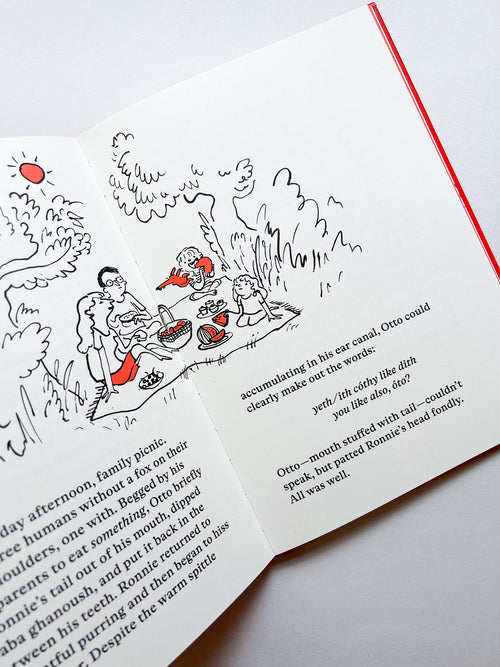 day afternoon, family picnic.
ree humans without a fox on their
oulders, one with. Begged by his
arents to eat something, Otto briefly
onnie's tail out of his mouth, dipped
aba ghanoush, and put it back in the
tween his teeth. Ronnie returned to
tful purring and then began to hiss
r. Despite the warm spittle
accumulating in his ear canal, Otto could
clearly make out the words:
yeth/ith cóthy like dith
you like also, óto?
Otto—mouth stuffed with tail—couldn't
speak, but patted Ronnie's head fondly.
All was well.